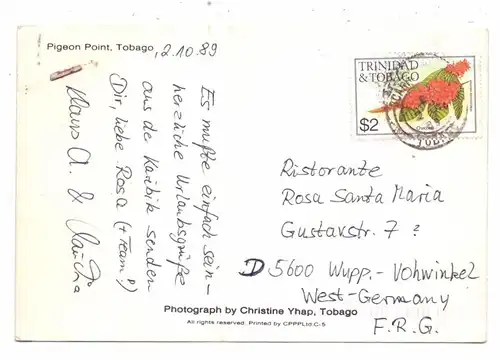 Pigeon Point, Tobago, 2.10.89
Es mußte einfach sein -
herzliche Urlaubsgrüße
aus de Karibik senden
Dir, liebe Rosa (+ Team!)
Klaus A. &
TRINIDAD
& TOBAGO
$2
Ristorante
Rosa Santa Maria
Gustavstr. 7 ?
D 5600 Wupp.- Vohwinkel
West-Germany
F.R.G.
Photograph by Christine Yhap, Tobago
All rights reserved. Printed by CPPPLtd.C-5